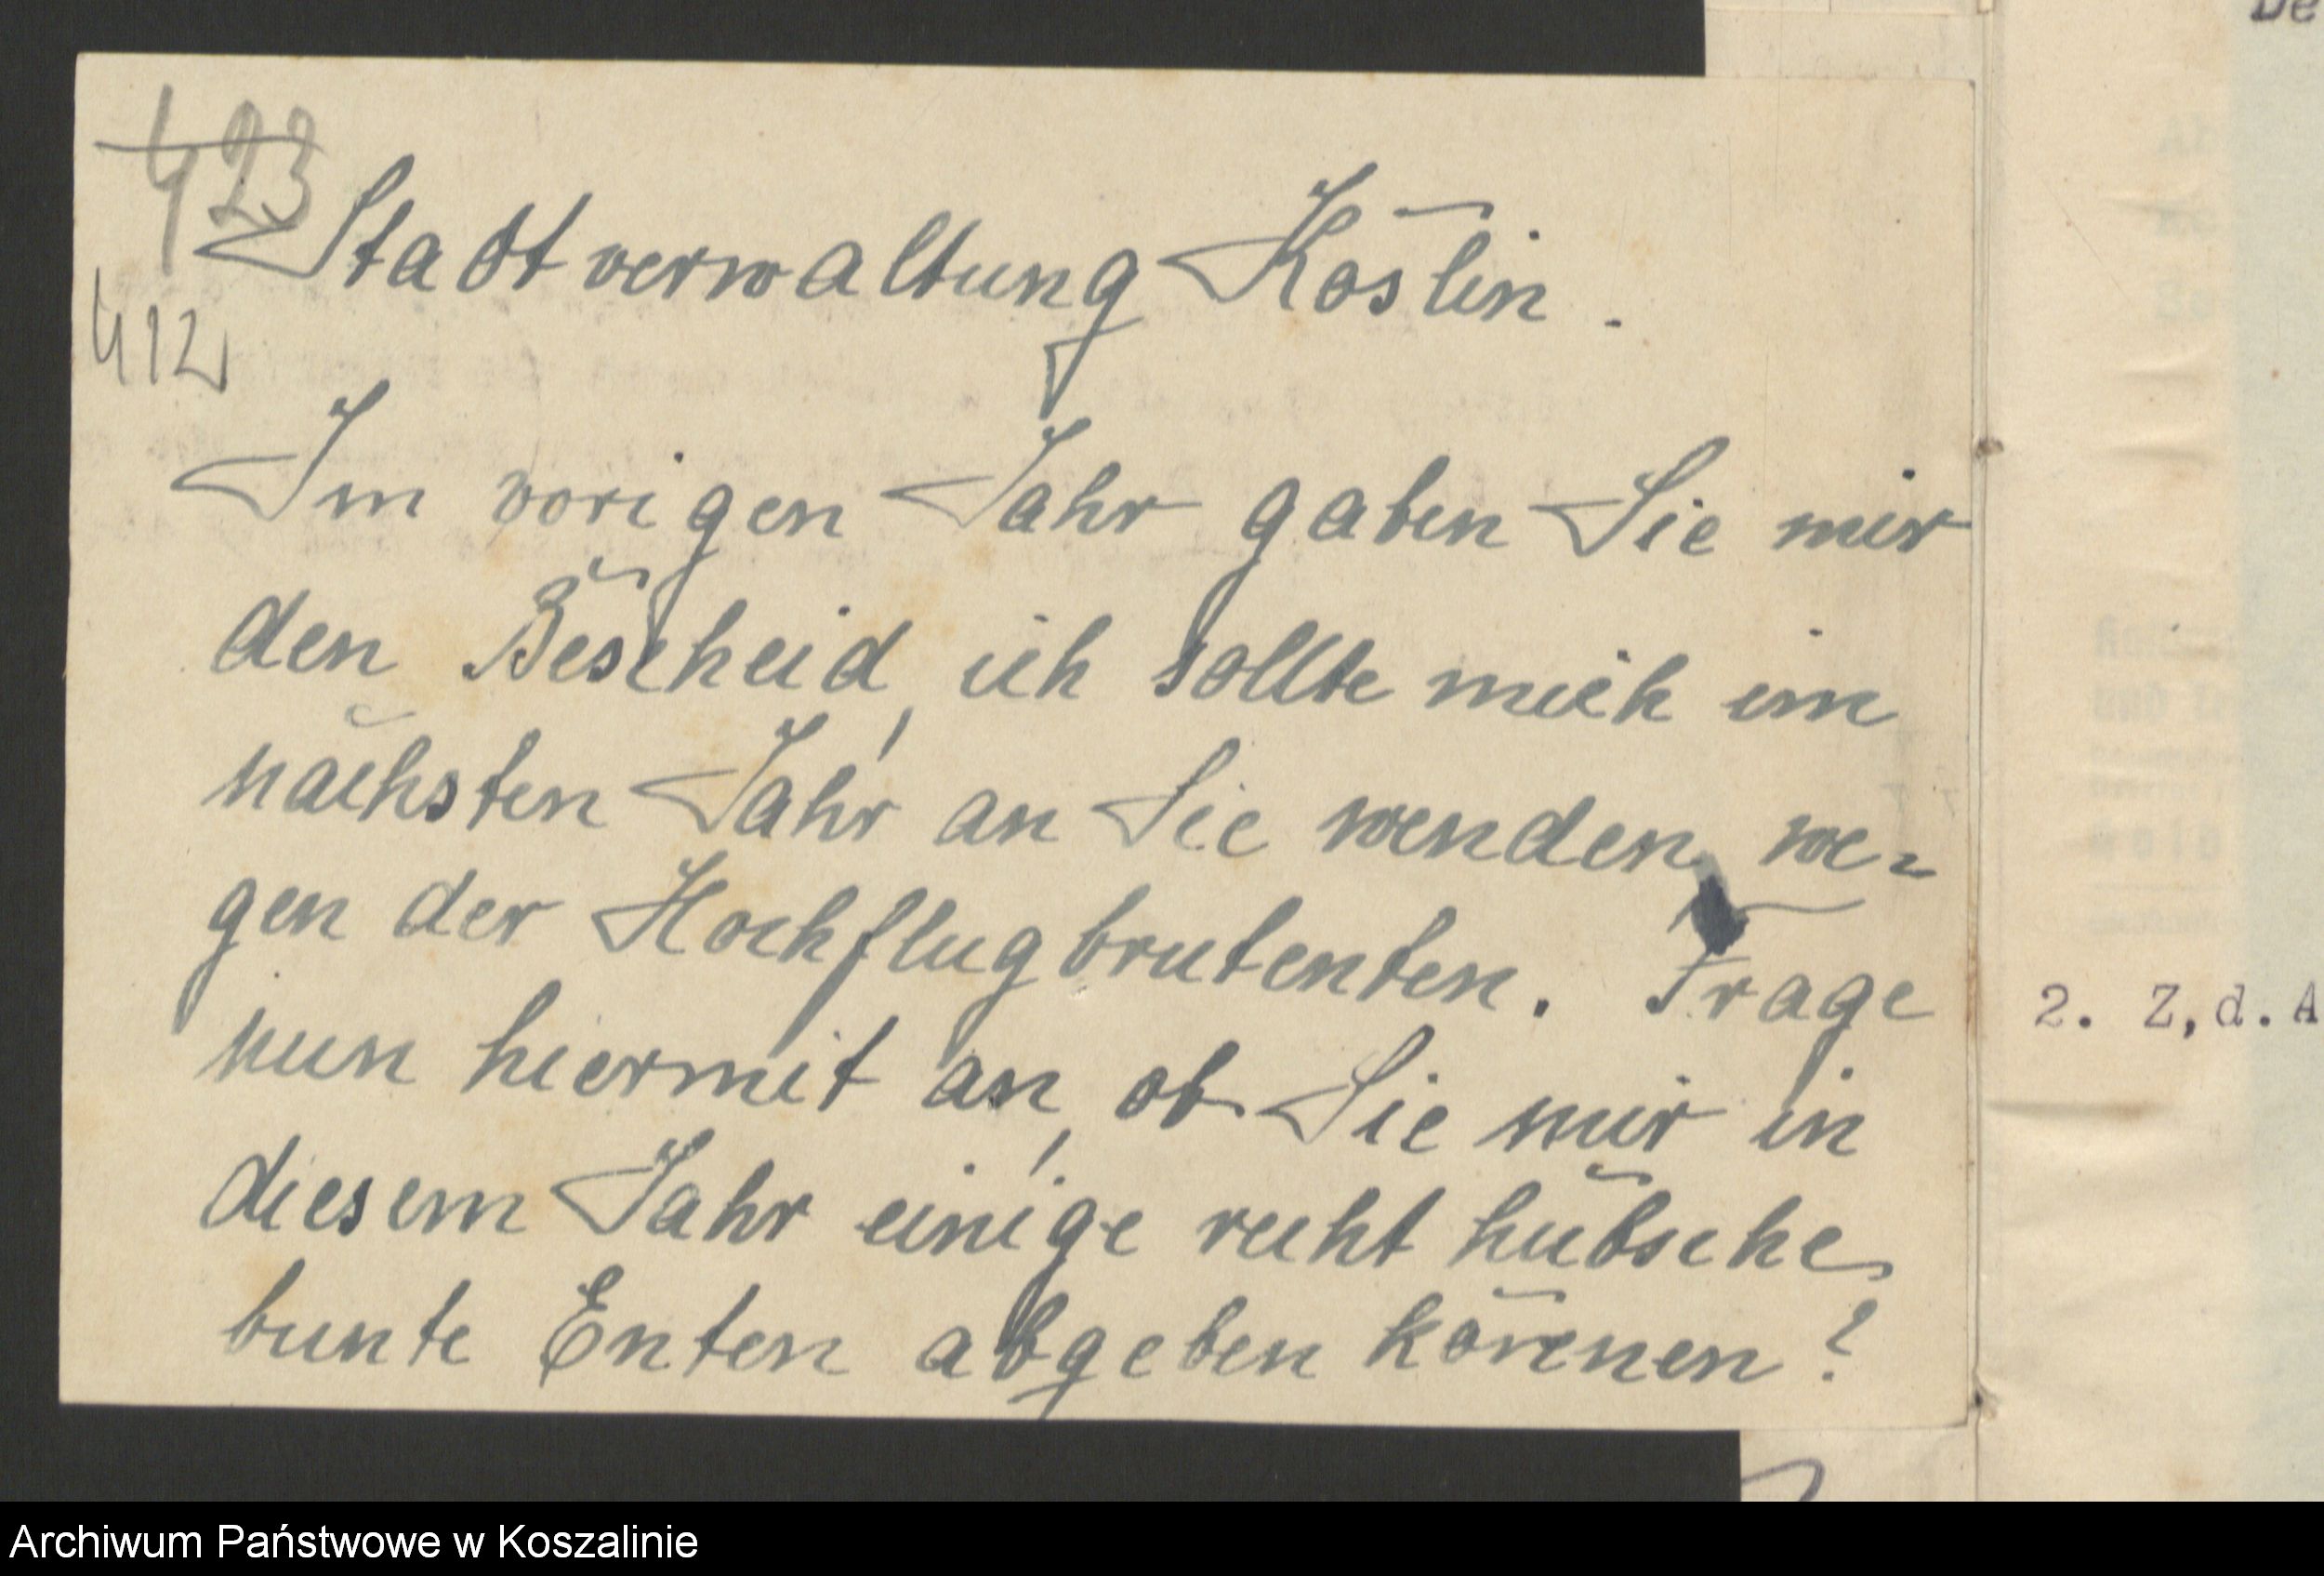 De
423
Stadtverwaltung Köslin.
412
Im vorigen Jahr gaben Sie mir
den Bescheid, ich sollte mich im
nächsten Jahr an Sie wenden we-
gen der Hochflugbrutenten. Frage
nun hiermit an, ob Sie mir in
diesem Jahr einige recht hübsche
bunte Enten abgeben können?
2. Z,d.A
Archiwum Państwowe w Koszalinie